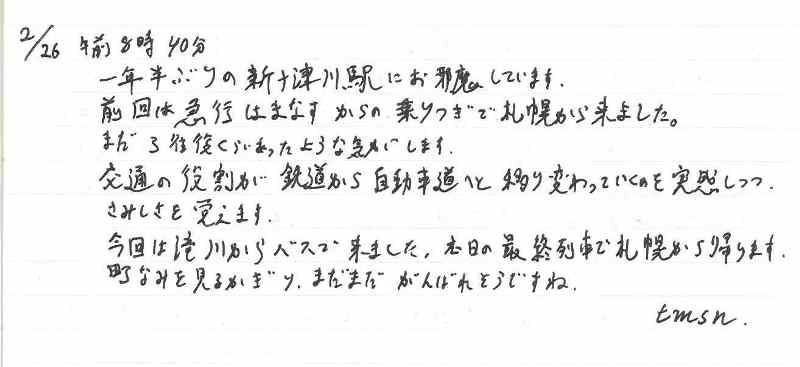 2/26 午前8時40分
一年半ぶりの新十津川駅にお邪魔しています.
前回は急行はまなすからの乗りつぎで札幌から来ました。
まだ3往復くらいあったような気がします.
交通の役割が鉄道から自動車道へと移り変わっていくのを実感しつつ.
さみしさを覚えます.
今回は滝川からバスで来ました, 本日の最終列車で札幌から帰ります.
町なみを見るかぎり, まだまだ がんばれそうですね.
tmsn.